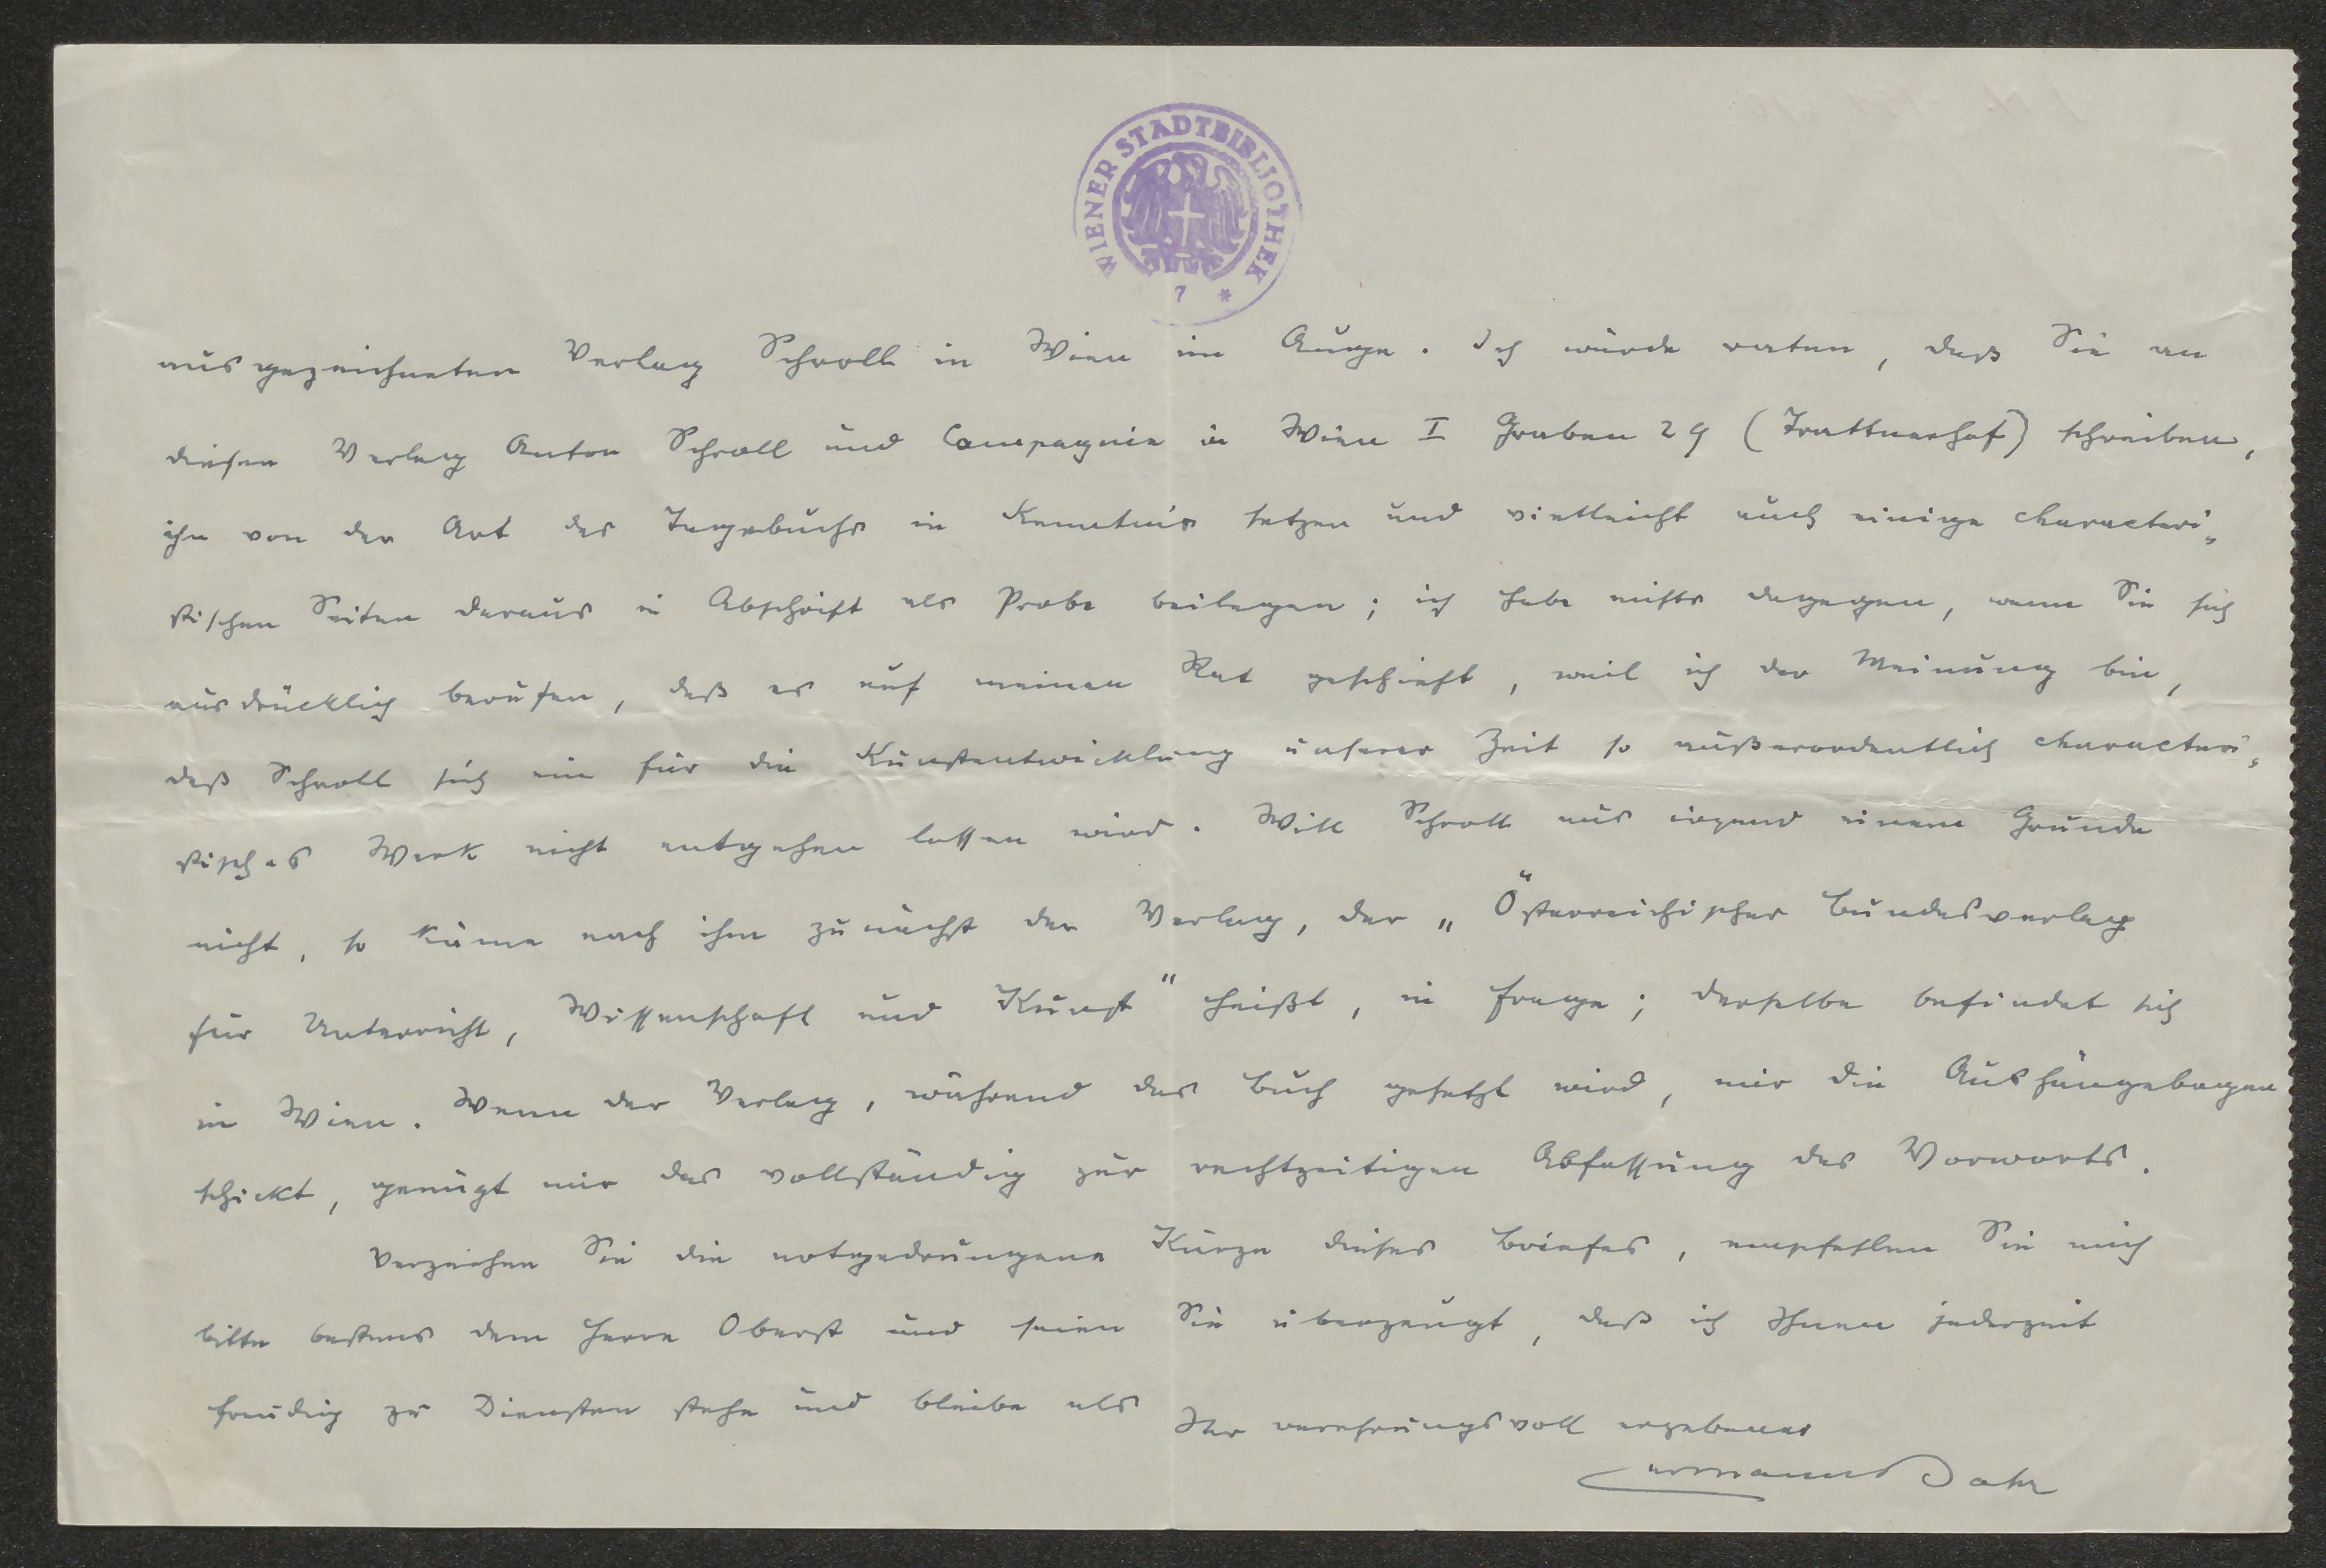 WIENER STADTBIBLIOTHEK
7 *
ausgezeichneten Verlag Schroll in Wien im Auge. Ich würde raten, daß Sie an
diesen Verlag Anton Schroll und Compagnie in Wien I Graben 29 (Trattnerhof) schreiben,
ihn von der Art des Tagebuchs in Kenntnis setzen und vielleicht auch einige characteri„
stischen Seiten daraus in Abschrift als Probe beilegen; ich habe nichts dagegen, wenn Sie sich
ausdrücklich berufen, daß es auf meinen Rat geschieht, weil ich der Meinung bin,
daß Schroll sich ein für die Kunstentwicklung unserer Zeit so außerordentlich characteri„
stisches Werk nicht entgehen lassen wird. Will Schroll aus irgend einem Grunde
nicht, so käme nach ihm zunächst der Verlag, der „Österreichischer Bundesverlag
für Unterricht, Wissenschaft und Kunst“ heißt, in Frage; derselbe befindet sich
in Wien. Wenn der Verlag, während das Buch gesetzt wird, mir die Aushängebogen
schickt, genügt mir das vollständig zur rechtzeitigen Abfassung des Vorworts.
Verzeihen Sie die notgedrungene Kürze dieses Briefes, empfehlen Sie mich
bitte bestens dem Herrn Oberst und seien Sie überzeugt, daß ich Ihnen jederzeit
freudig zu Diensten stehe und bleibe als
Ihr verehrungsvoll ergebener
Hermann Bahr